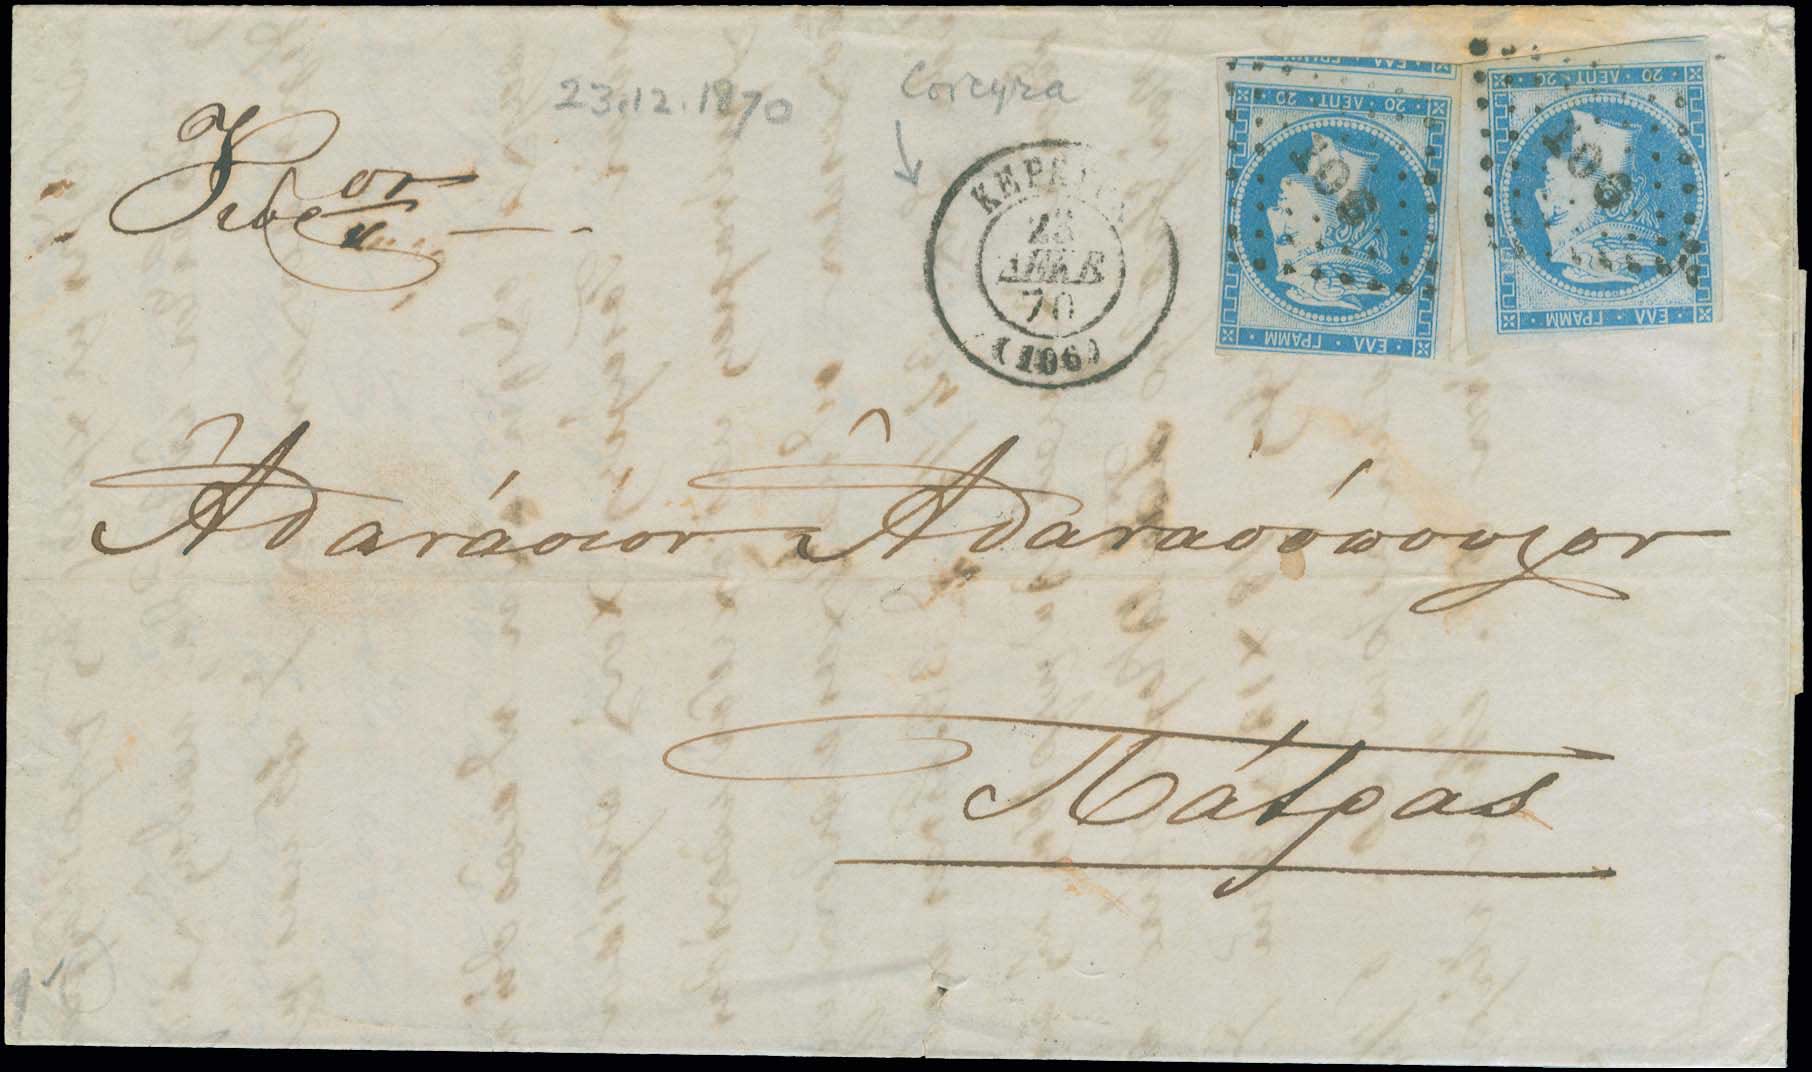 23.12.1870
Corcyra
ΚΕΡΚΥΡΑ
23
ΔΕΚΕ
70
(106)
20 · ΛΕΠΤ · 20
ΕΛΛ · ΓΡΑΜΜ
106
20 · ΛΕΠΤ · 20
ΕΛΛ · ΓΡΑΜΜ
106
Ἀθανάσιον Ἀθανασόπουλον
Πάτρας